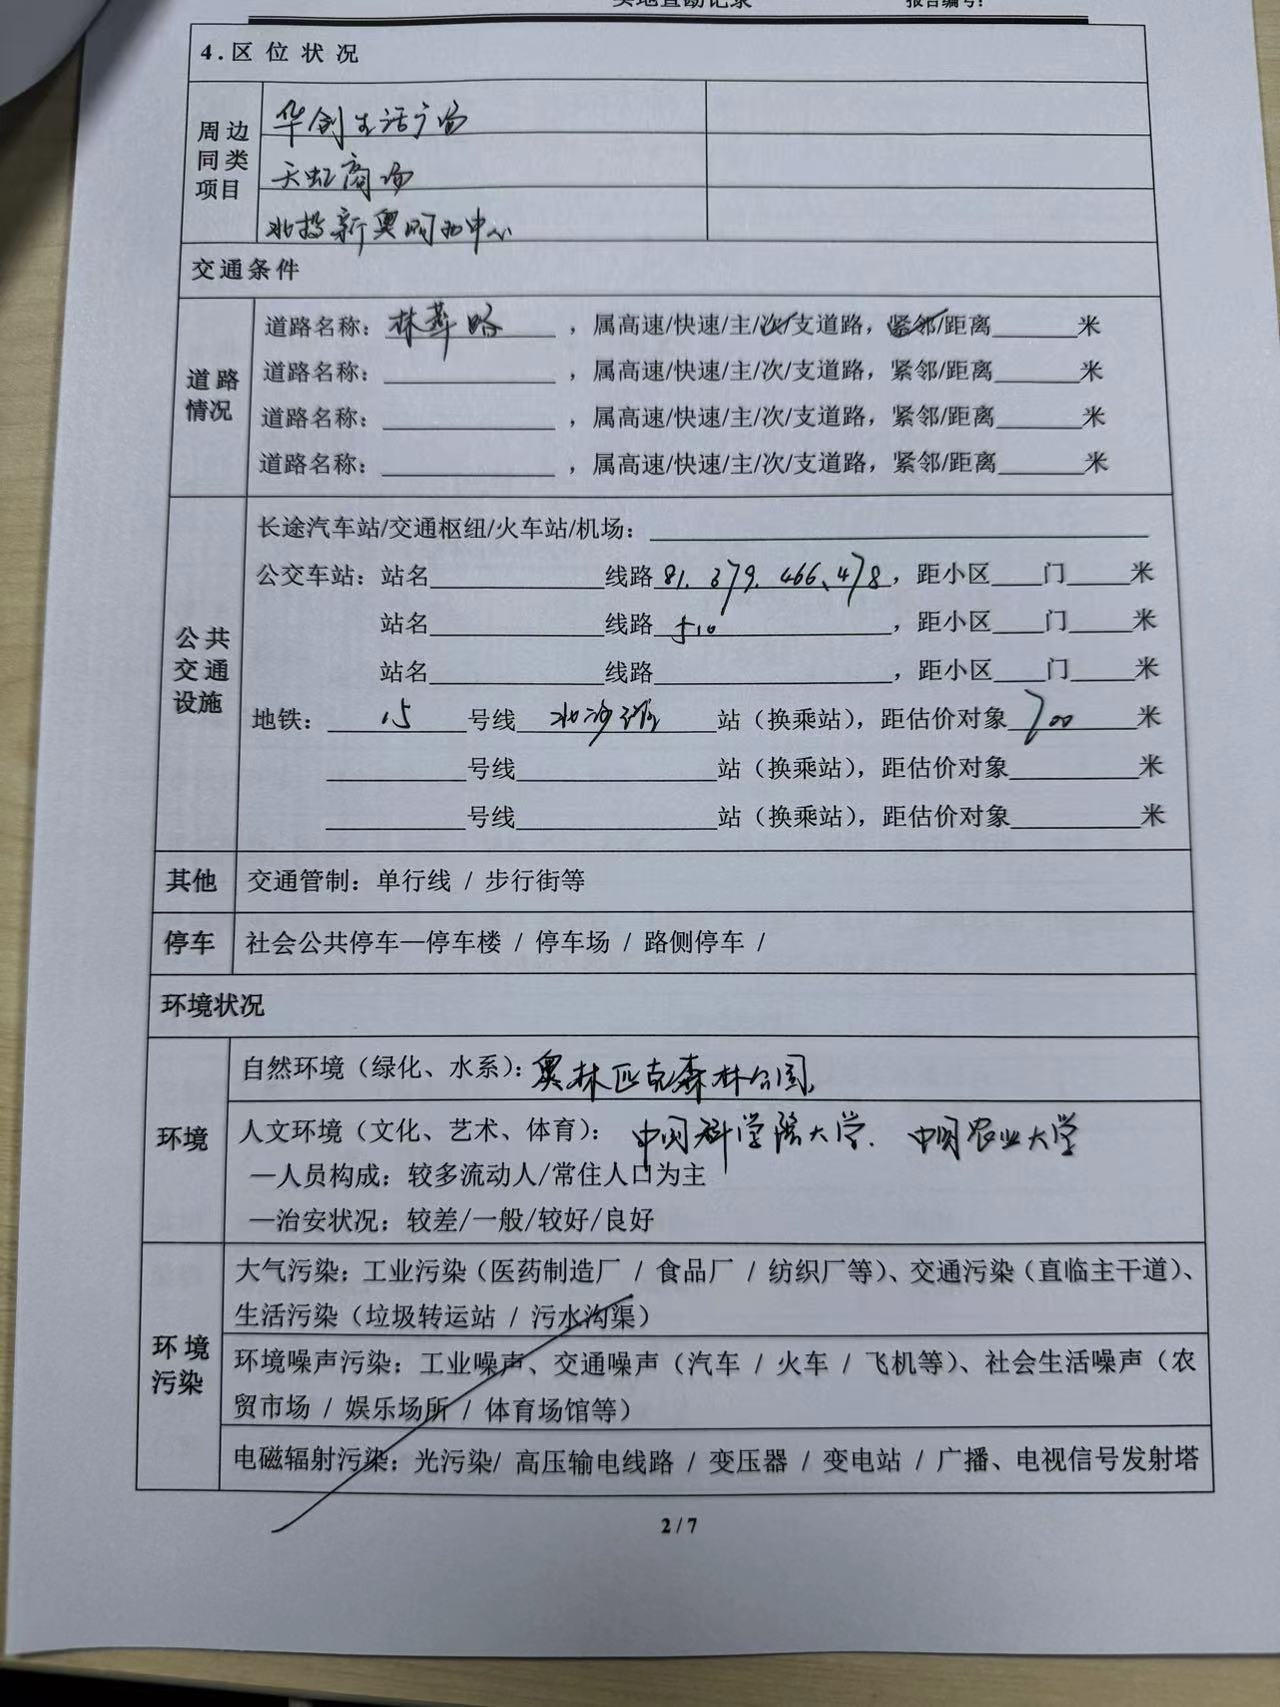 实地查勘记录 报告编号:
4.区位状况
周边同类项目
华创生活广场
天虹商场
北投新奥购物中心
交通条件
道路情况
道路名称：林萃路，属高速/快速/主/次/支道路，紧邻/距离____米
道路名称：________，属高速/快速/主/次/支道路，紧邻/距离____米
道路名称：________，属高速/快速/主/次/支道路，紧邻/距离____米
道路名称：________，属高速/快速/主/次/支道路，紧邻/距离____米
公共交通设施
长途汽车站/交通枢纽/火车站/机场：________
公交车站：站名________线路81.379.466、478，距小区____门____米
站名________线路510，距小区____门____米
站名________线路________，距小区____门____米
地铁：15号线北沙滩站（换乘站），距估价对象700米
________号线________站（换乘站），距估价对象________米
________号线________站（换乘站），距估价对象________米
其他 交通管制：单行线 / 步行街等
停车 社会公共停车—停车楼 / 停车场 / 路侧停车 /
环境状况
环境
自然环境（绿化、水系）：奥林匹克森林公园
人文环境（文化、艺术、体育）：中国科学院大学、中国农业大学
—人员构成：较多流动人/常住人口为主
—治安状况：较差/一般/较好/良好
环境污染
大气污染：工业污染（医药制造厂 / 食品厂 / 纺织厂等）、交通污染（直临主干道）、
生活污染（垃圾转运站 / 污水沟渠）
环境噪声污染：工业噪声、交通噪声（汽车 / 火车 / 飞机等）、社会生活噪声（农
贸市场 / 娱乐场所 / 体育场馆等）
电磁辐射污染：光污染/ 高压输电线路 / 变压器 / 变电站 / 广播、电视信号发射塔
2 / 7